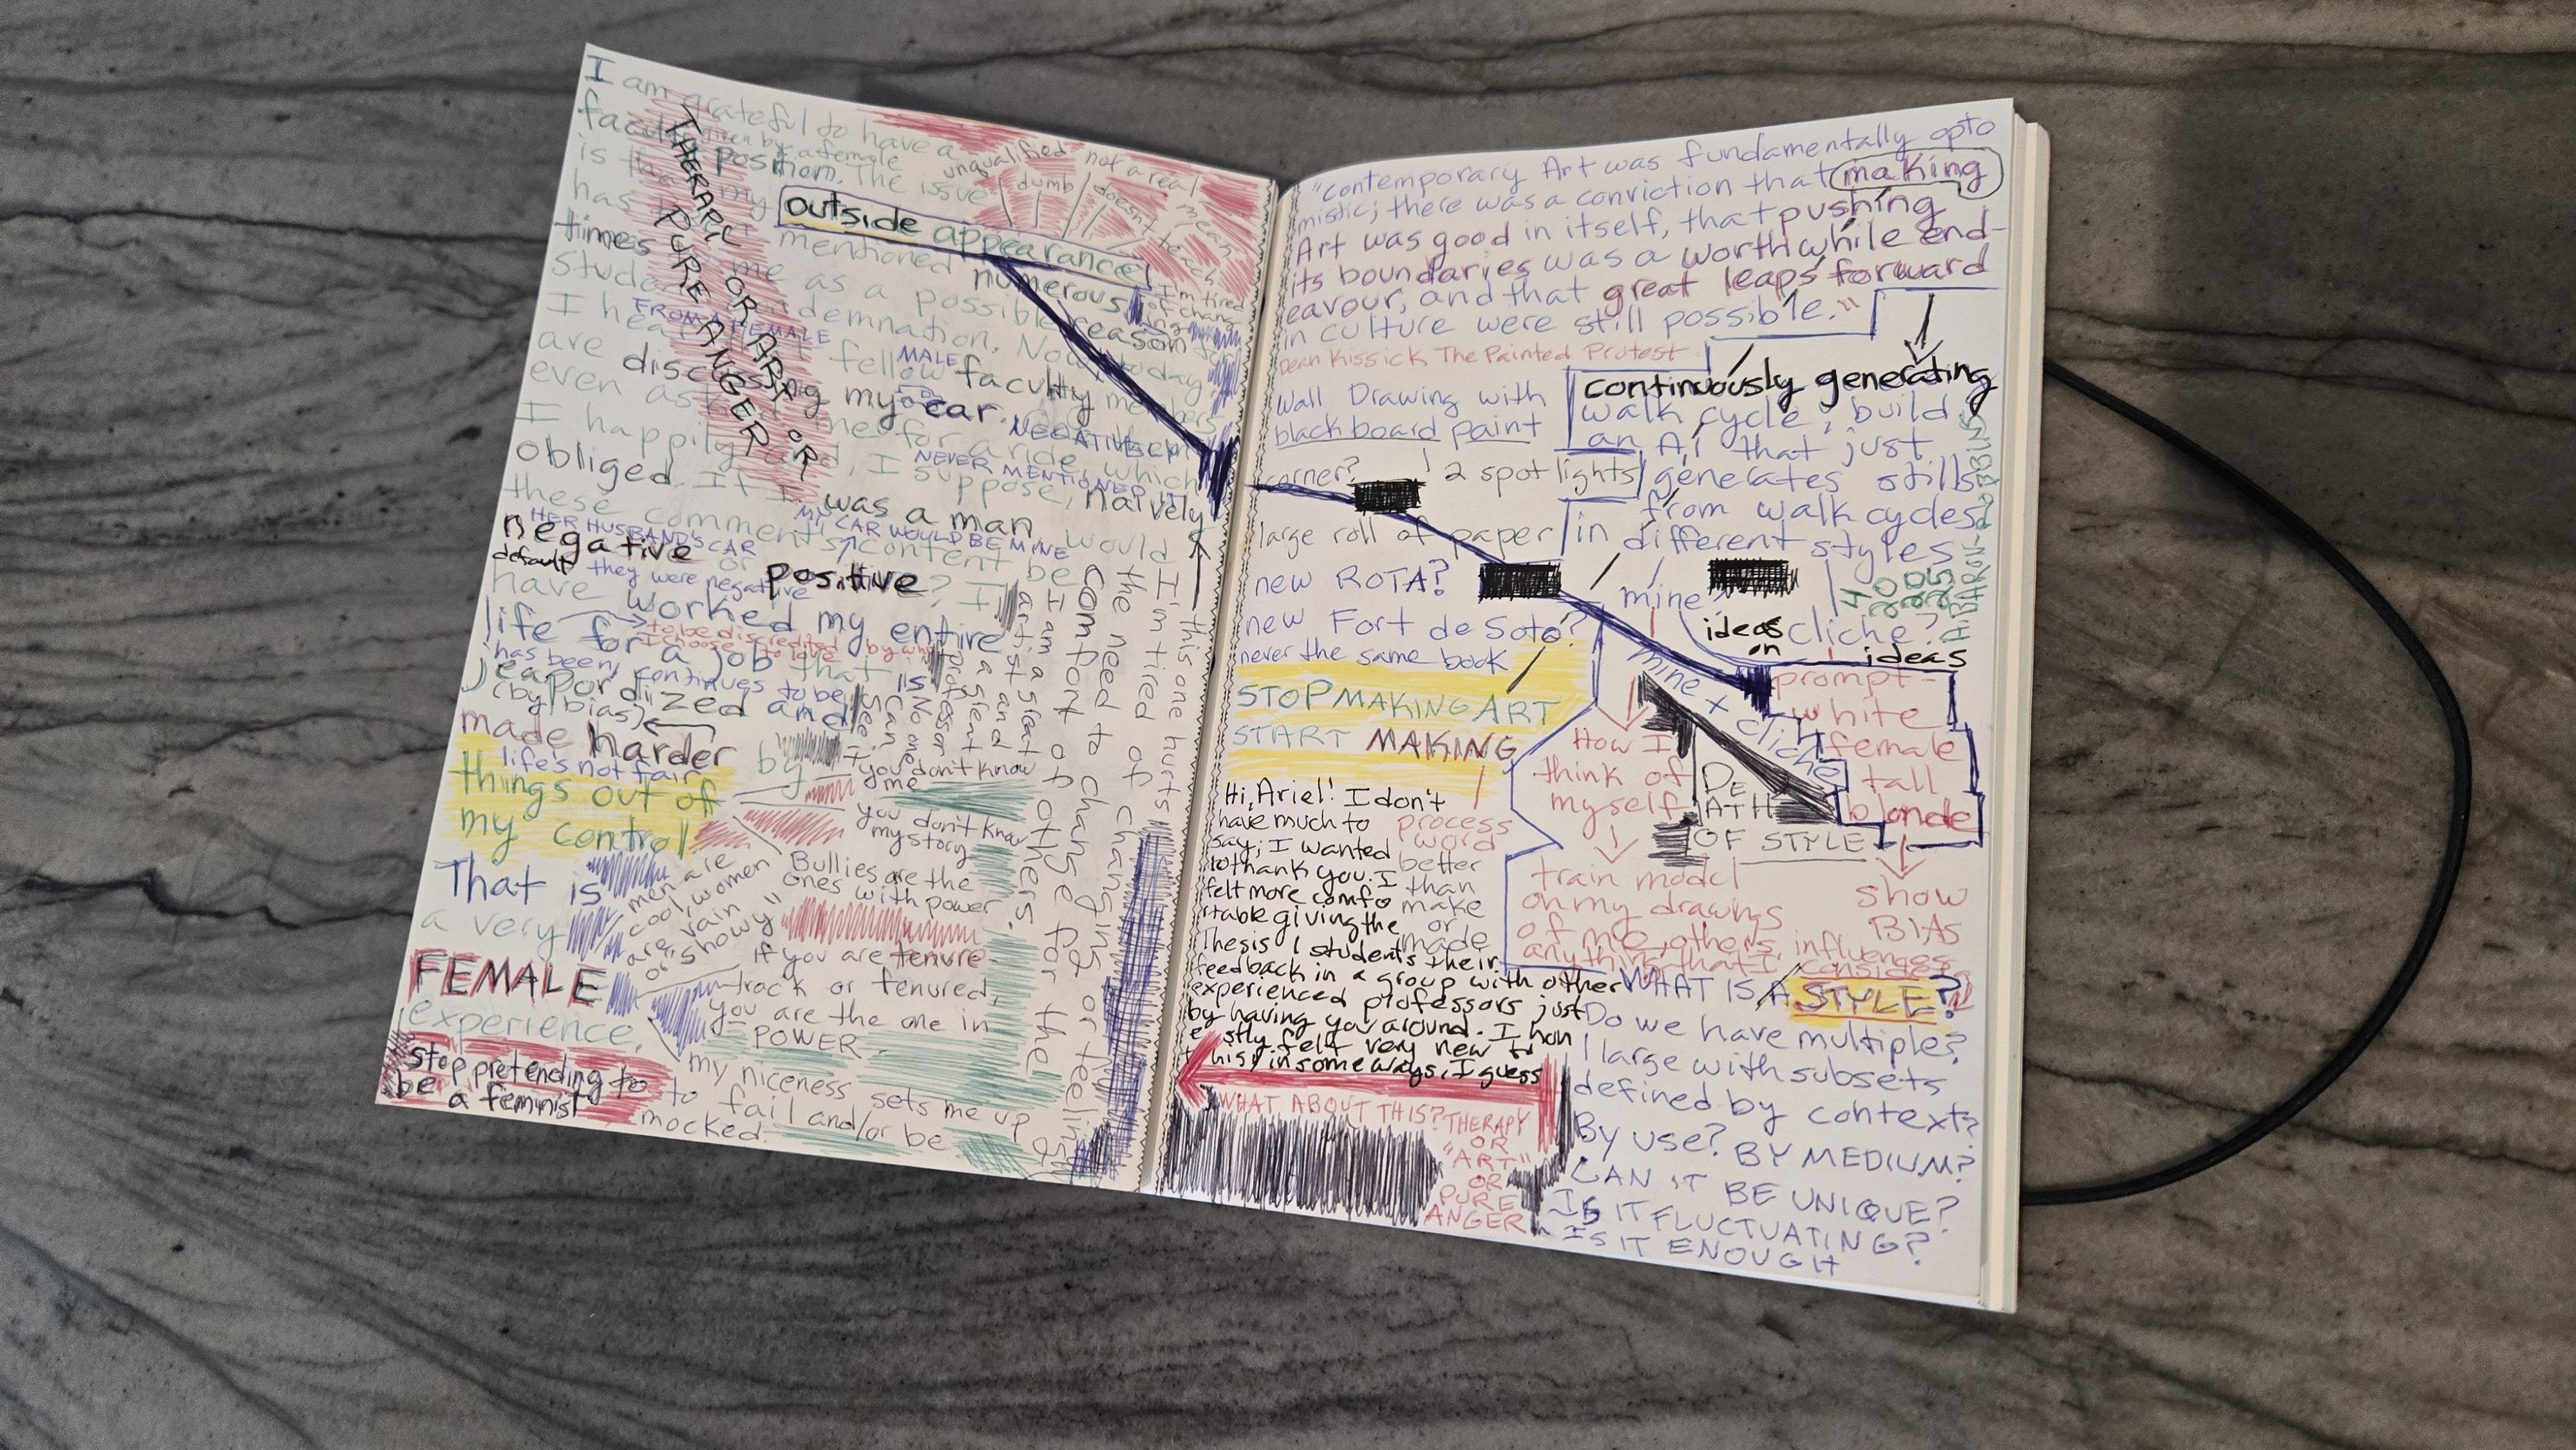 I am grateful to have a
faculty
given by a female
position. The issue
is that my
outside appearance
unqualified
dumb
not a real
doesn't
mean
teach
has mentioned numerous
times me as a possible reason for
I'm tired
of chang
ing
THERAPY OR ART OR
PURE ANGER
student demnation. Now today
FROM A FEMALE
MALE
I hear fellow faculty members
are discussing my car.
NEGATIVE
even ask me for a ride, which
NEVER MENTIONED IT
I happily did, I suppose, naively
obliged. If I was a man would
MY CAR WOULD BE MINE
these comments content be
HER HUSBAND'S CAR
negative or positive? I
default they were negative
have worked my entire
to be discredited by who
I choose to love
life for a job that is
has been, continues to be
jeapordized and
(by bias)
made harder by
life's not fair
things out of
my control.
That is
a very
FEMALE
experience.
stop pretending to
be a feminist
men are
cool, women
are vain
or "showy"
you don't know
me
you don't know
my story
Bullies are the
ones with power
If you are tenure
track or tenured,
you are the one in
POWER.
my niceness sets me up
to fail and/or be
mocked.
See I
can
No one
professor
a great
artist and
I am a great
this one hurts
I'm tired of changing or feeling
the need to change for the
comfort of others.
"contemporary Art was fundamentally opto
mistic; there was a conviction that making
Art was good in itself, that pushing
its boundaries was a worthwhile end-
eavour, and that great leaps forward
in culture were still possible."
Dean Kissick The Painted Protest
Wall Drawing with
blackboard paint
corner?
2 spot lights
large roll of paper
new ROTA?
new Fort de Soto?
never the same book
STOP MAKING ART
START MAKING
continuously generating
walk cycle; build
an AI that just
generates stills
from walk cycles
in different styles
mine?
ideas
on
cliche?
ideas
4
20
2025
mine x cliche
prompt-
white
female
tall
blonde
show
BIAS
How I
think of
myself
DE
ATH
OF STYLE
train model
on my drawings
of me, others, influences
anything that I consider
Hi, Ariel! I don't
have much to
say; I wanted
to thank you. I
felt more comfo
rtable giving the
Thesis 1 student's their
feedback in a group with other
experienced professors just
by having you around. I hon
estly felt very new to
this, in some ways, I guess
process
word
better
than
make
or
made
WHAT ABOUT THIS? THERAPY
OR
"ART"
OR
PURE
ANGER
WHAT IS A STYLE?
Do we have multiple?
1 large with subsets
defined by context?
By use? BY MEDIUM?
CAN IT BE UNIQUE?
IS IT FLUCTUATING?
IS IT ENOUGH